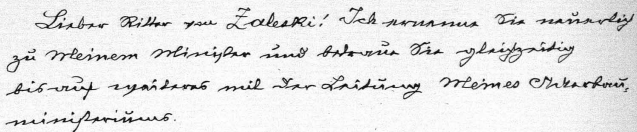 Lieber Ritter von Zaleski! Ich ernenne Sie neuerlich
zu Meinem Minister und betraue Sie gleichzeitig
bis auf weiteres mit der Leitung Meines Ackerbau-
ministeriums.